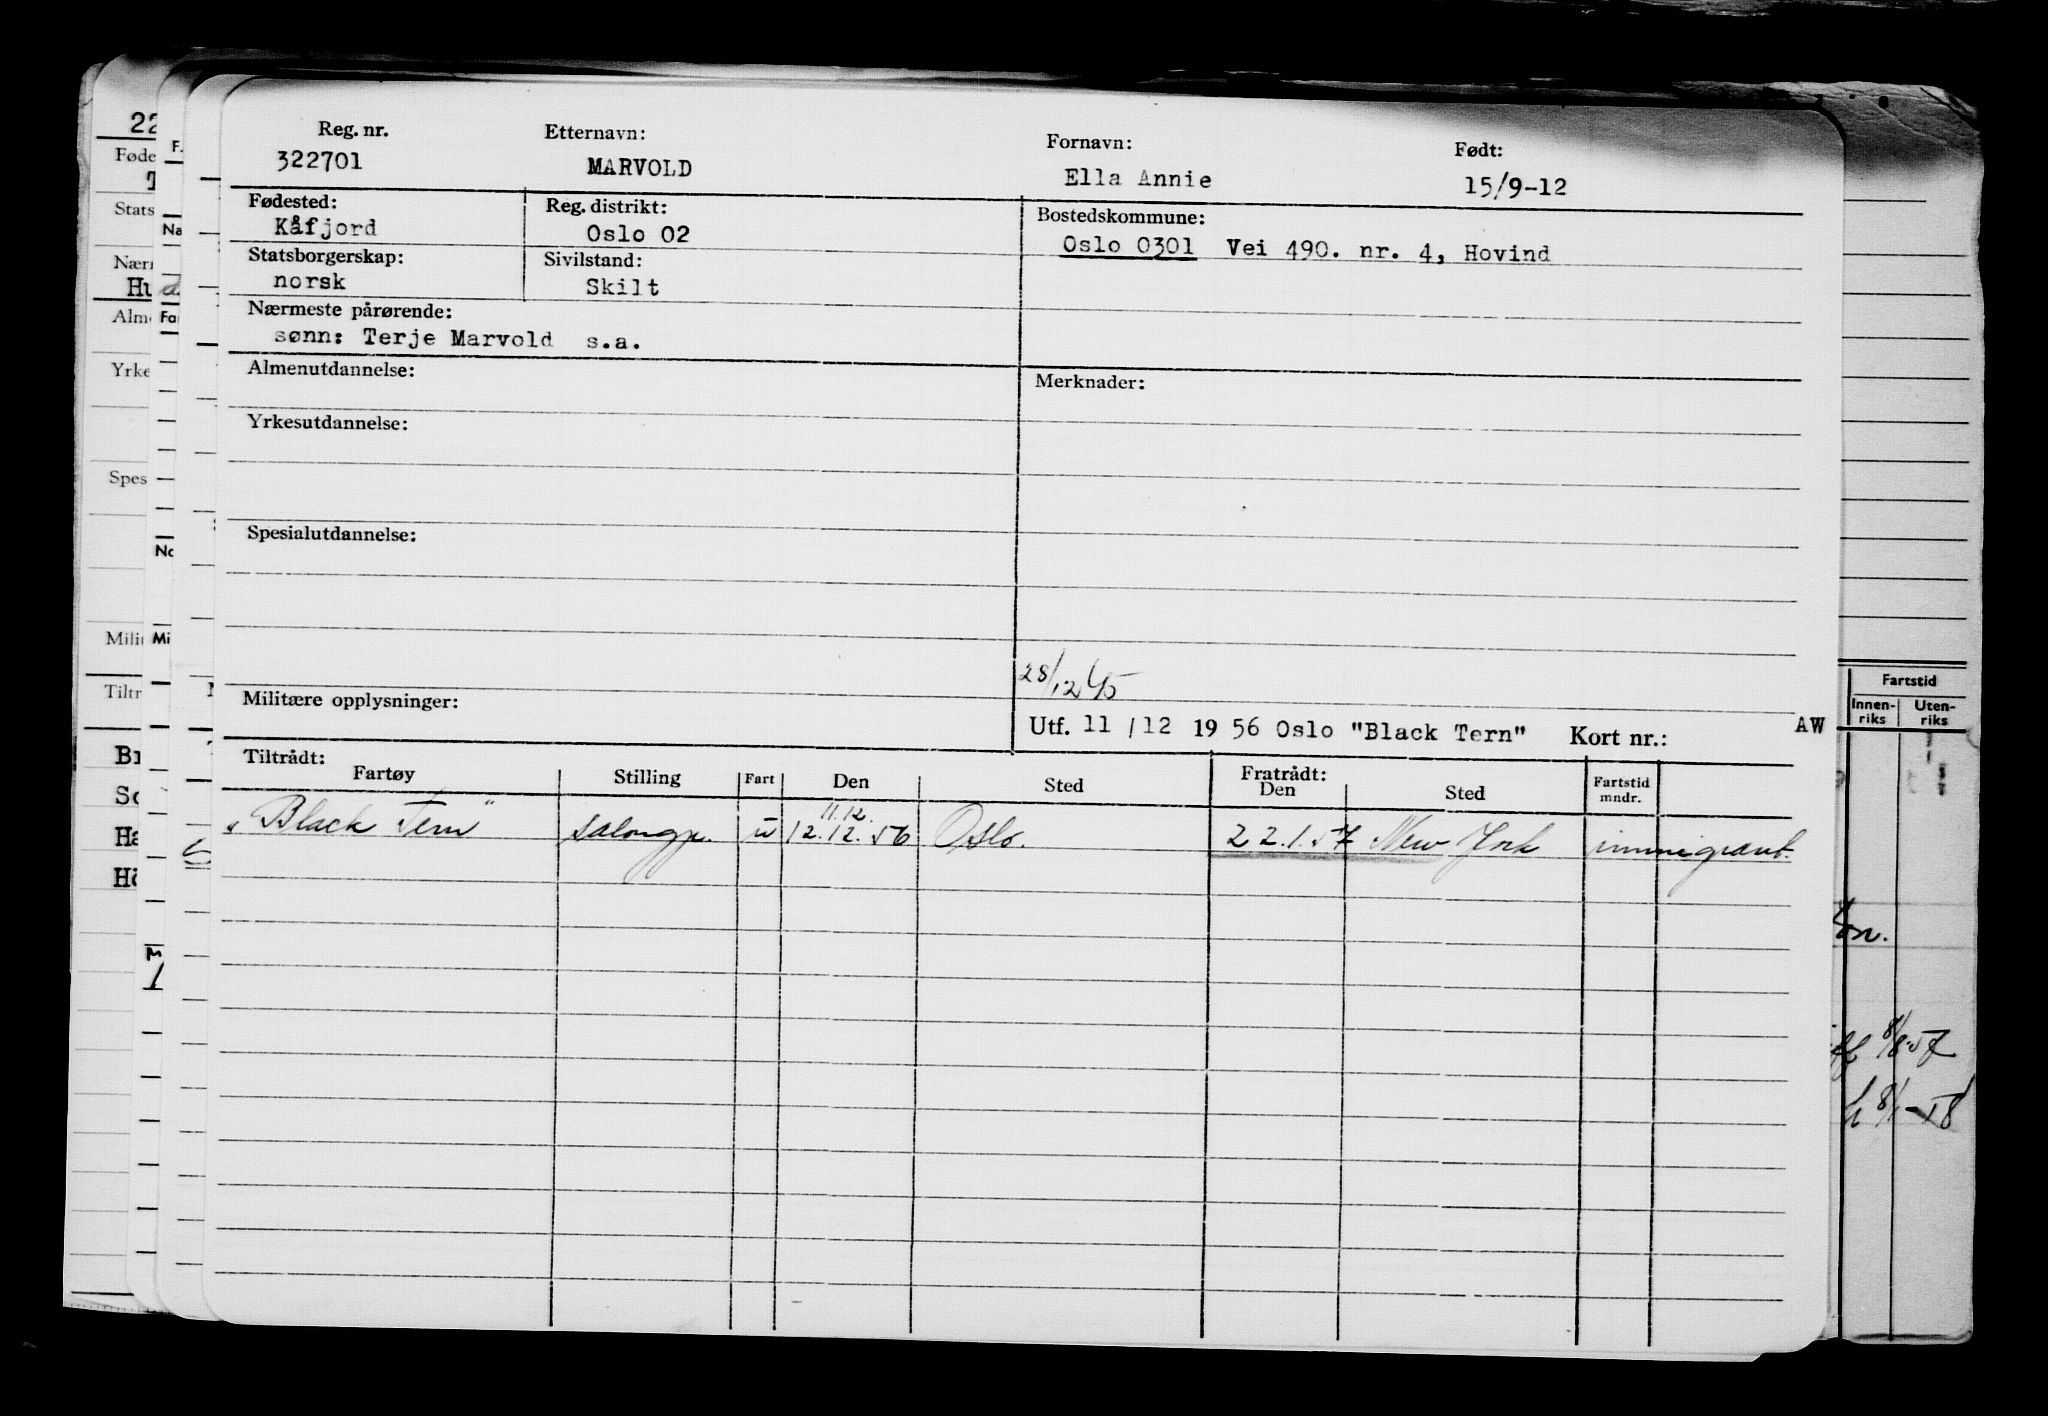 Reg. nr. Etternavn: Fornavn: Født:
322701 MARVOLD Ella Annie 15/9-12
Fødested: Reg. distrikt: Bostedskommune:
Kåfjord Oslo 02 Oslo 0301 Vei 490. nr. 4, Hovind
Statsborgerskap: Sivilstand:
norsk Skilt
Nærmeste pårørende:
sønn: Terje Marvold s.a.
Almenutdannelse: Merknader:
Yrkesutdannelse:
Spesialutdannelse:
28/12 45
Militære opplysninger:
Utf. 11 / 12 19 56 Oslo "Black Tern" Kort nr.: AW
Tiltrådt: Fratrådt:
Fartøy Stilling Fart Den Sted Den Sted Fartstid mndr.
11.12.
"Black Tern" salongp. u 12.12.56 Oslo. 22.1.57 New York immigrant.
22
Føde
Stats
Nærr
Hu
Alme
Yrke
Spes
Milit
Tiltr
Br
So
Ha
Hö
F.
Na
Fa
No
Mi
M
1
Fartstid
Innen-riks Uten-riks
8/8-57
8/1-58